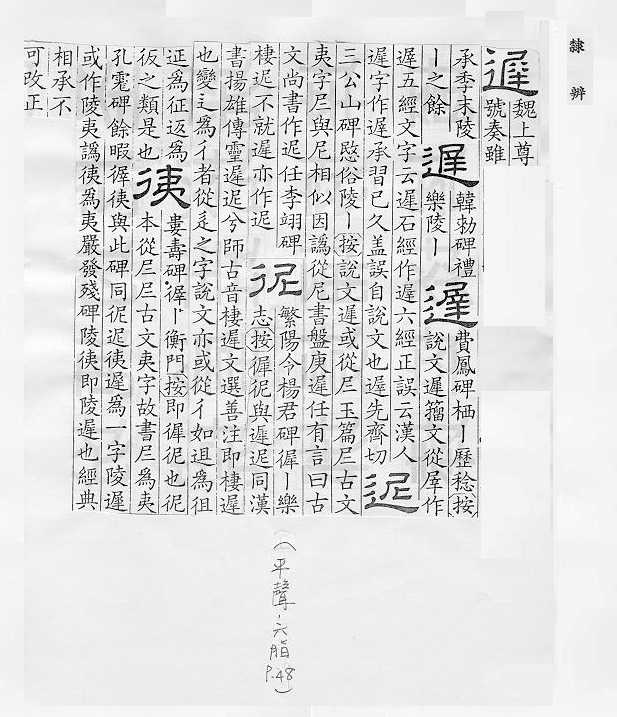 隸辨
遲
魏上尊
號奏雖
承季末陵
丨之餘
遲
韓勑碑禮
樂陵丨
遲
費鳳碑栖丨歷稔按
說文遲籀文從屖作
遲五經文字云遲石經作遲六經正誤云漢人
遲字作遲承習已久盖誤自說文也遲先齊切
迡
三公山碑愍俗陵丨按說文遲或從𡰥玉篇𡰥古文
夷字𡰥與尼相似因譌從尼書盤庚遲任有言曰古
文尚書作迡任李翊碑
棲迡不就遲亦作迡
徲
繁陽令楊君碑徲丨樂
志按徲彽與遲迡同漢
書揚雄傳靈遲迡兮師古音棲遲文選善注即棲遲
也變辵為彳者從辵之字說文亦或從彳如䢐為徂
𨒌為征返為
彶之類是也
徲
婁壽碑徲丨衡門按即徲彽也彽
本從𡰥𡰥古文夷字故書𡰥為夷
孔宙碑餘暇徲徥與此碑同彽迡徥遲為一字陵遲
或作陵夷譌徥為夷嚴發殘碑陵徥即陵遲也經典
相承不
可改正
(平聲·六脂
P.48)